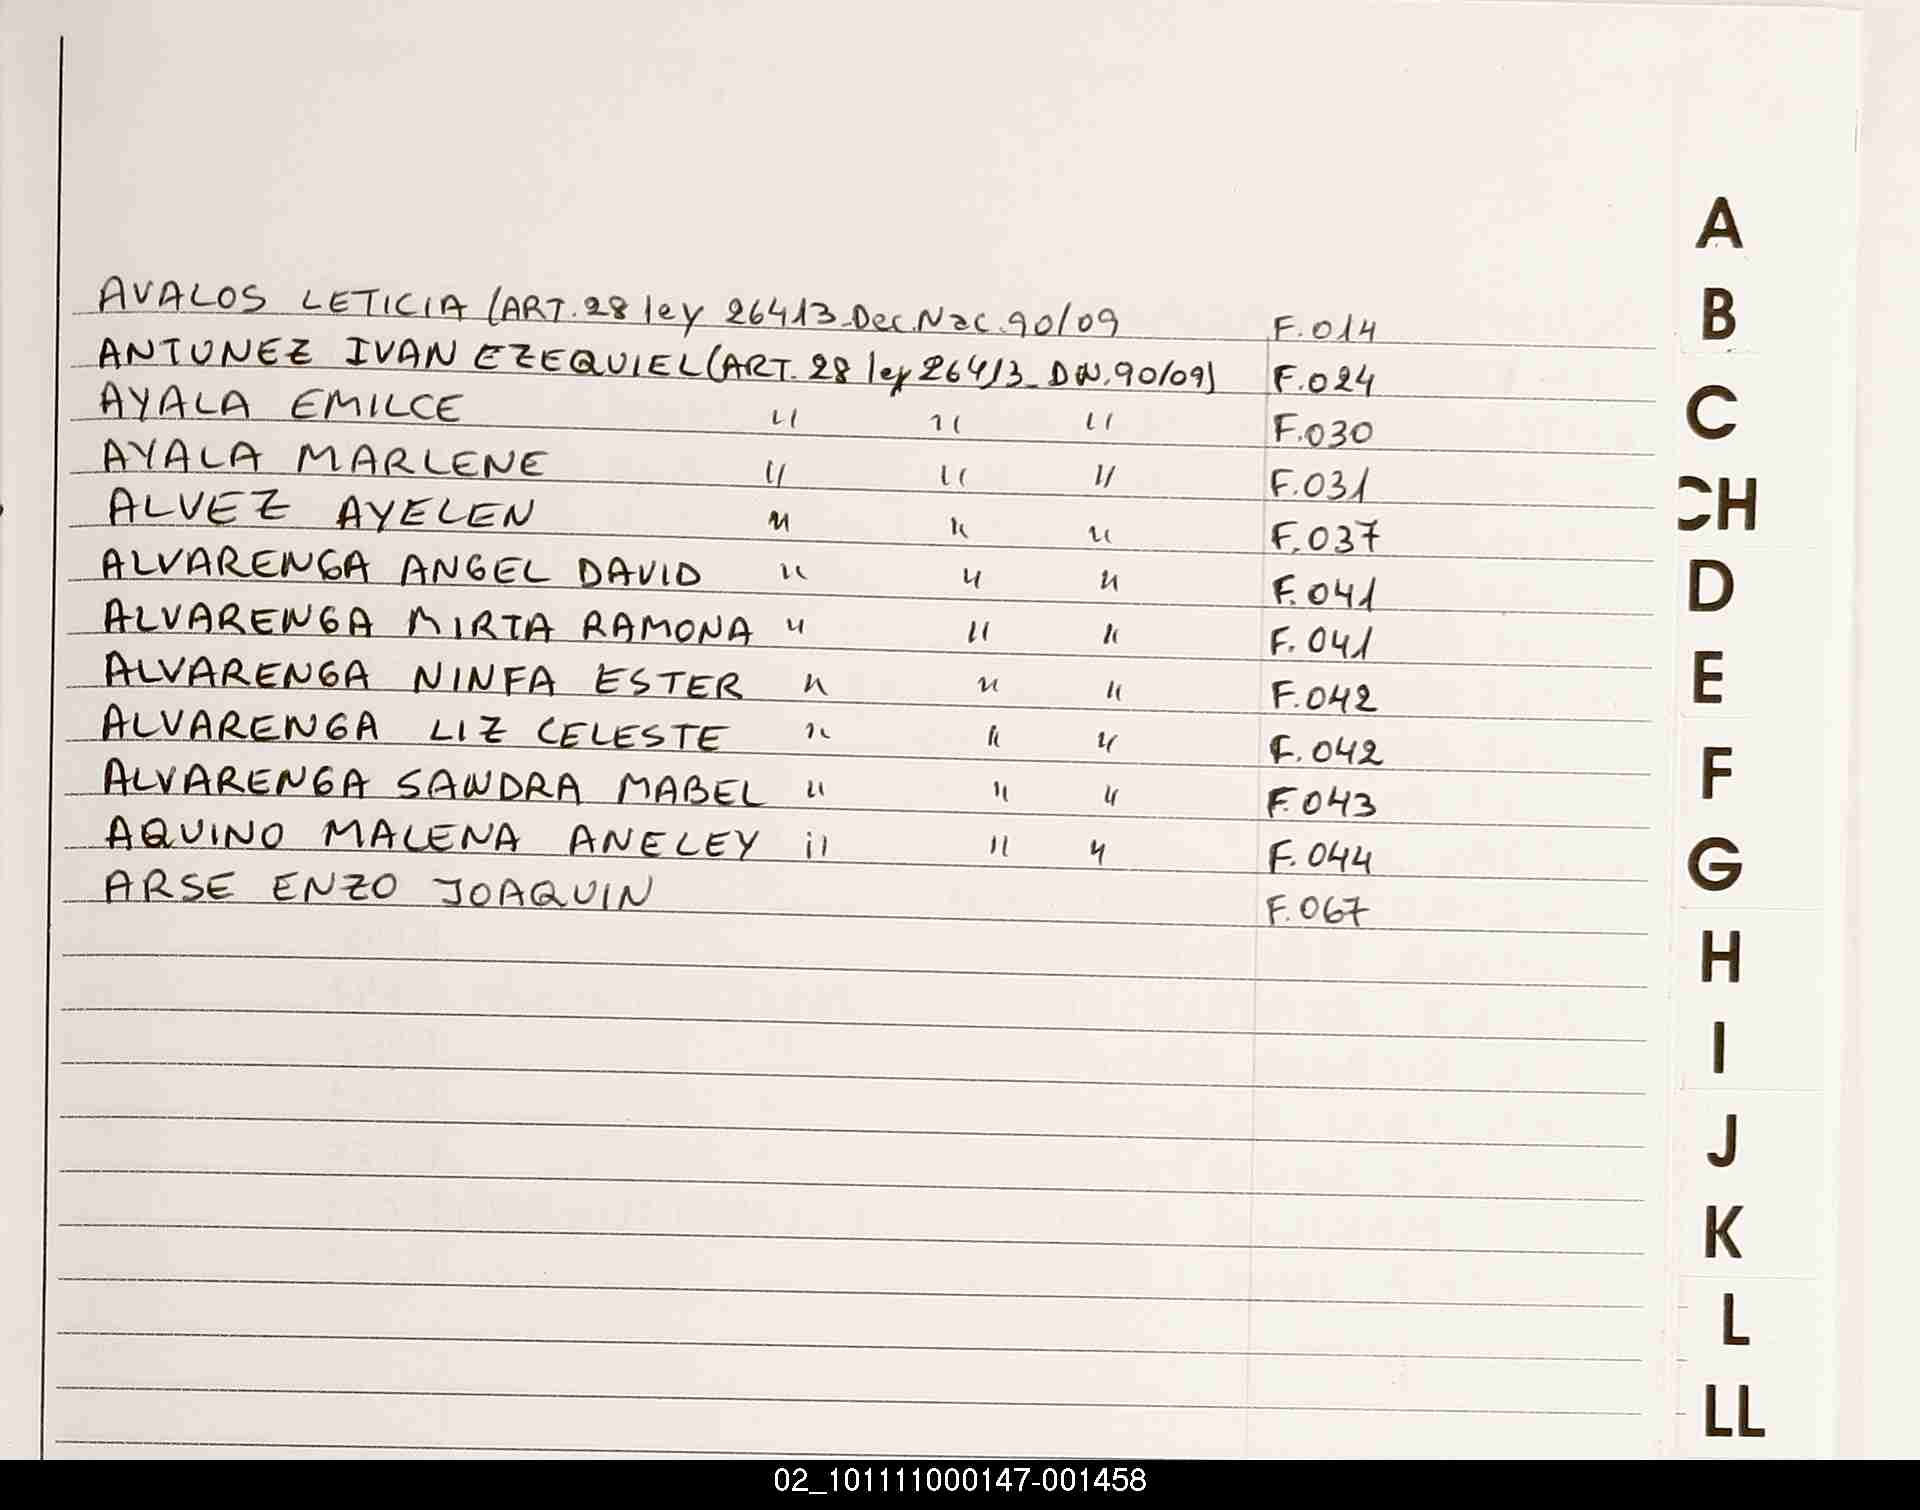 AVALOS LETICIA (ART. 28 ley 26413-Dec.Nac.90/09 F.014
ANTUNEZ IVAN EZEQUIEL (ART. 28 ley 26413_DN.90/09) F.024
AYALA EMILCE " " " F.030
AYALA MARLENE " " " F.031
ALVEZ AYELEN " " " F.037
ALVARENGA ANGEL DAVID " " " F.041
ALVARENGA MIRTA RAMONA " " " F.041
ALVARENGA NINFA ESTER " " " F.042
ALVARENGA LIZ CELESTE " " " F.042
ALVARENGA SANDRA MABEL " " " F.043
AQUINO MALENA ANELEY " " " F.044
ARSE ENZO JOAQUIN F.067
A
B
C
CH
D
E
F
G
H
I
J
K
L
LL
02_101111000147-001458